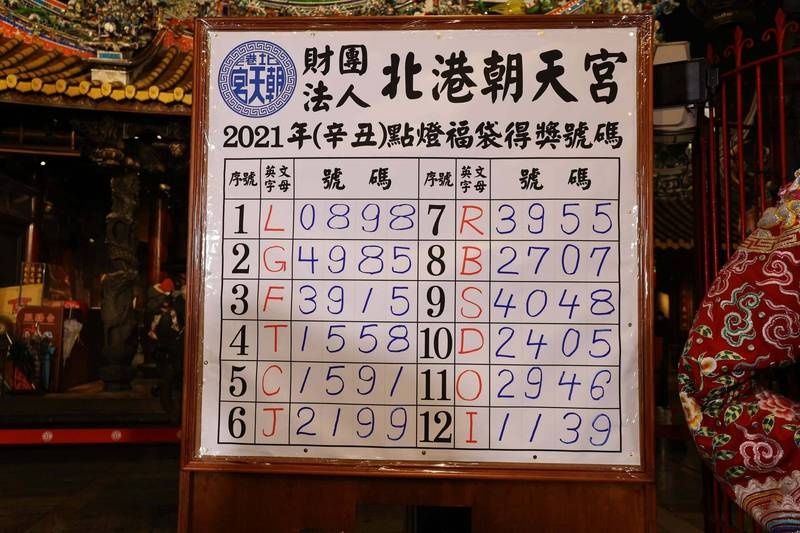 北港
朝天宮
財團
法人
北港朝天宮
2021年(辛丑)點燈福袋得獎號碼
序號 英文字母 號碼 序號 英文字母 號碼
1 L 0898 7 R 3955
2 G 4985 8 B 2707
3 F 3915 9 S 4048
4 T 1558 10 D 2405
5 C 1591 11 O 2946
6 J 2199 12 I 1139